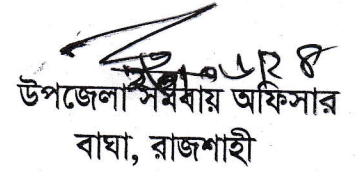 উপজেলা সমবায় অফিসার
বাঘা, রাজশাহী